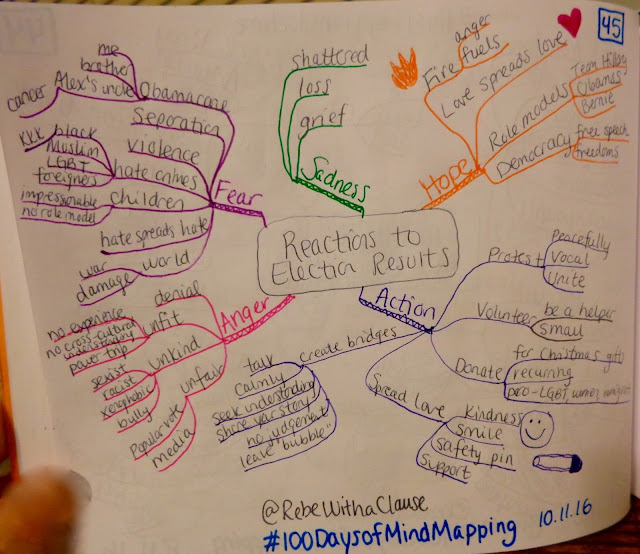 45
Reactions to
Election Results
Fear
me
brother
Alex's uncle
cancer
Obamacare
Separation
violence
hate crimes
black
KKK
Muslim
LGBT
foreigners
children
impressionable
no role model
hate spreads hate
world
war
damage
Sadness
shattered
loss
grief
Hope
Fire fuels
anger
Love spreads love
Role models
Team Hillary
Obamas
Bernie
Democracy
free speech
freedoms
Action
Protest
Peacefully
Vocal
Unite
Volunteer
be a helper
Small
Donate
for Christmas gifts
recurring
pro-LGBT, women,
Spread love
Kindness
smile
safety pin
support
create bridges
talk
calmly
seek understanding
share your story
no judgement
leave "bubble"
Anger
denial
unfit
no experience
no cross-cultural
understanding
power trip
unkind
sexist
racist
xenophobic
bully
unfair
Popular vote
media
@RebeWithaClause
#100DaysofMindMapping
10.11.16